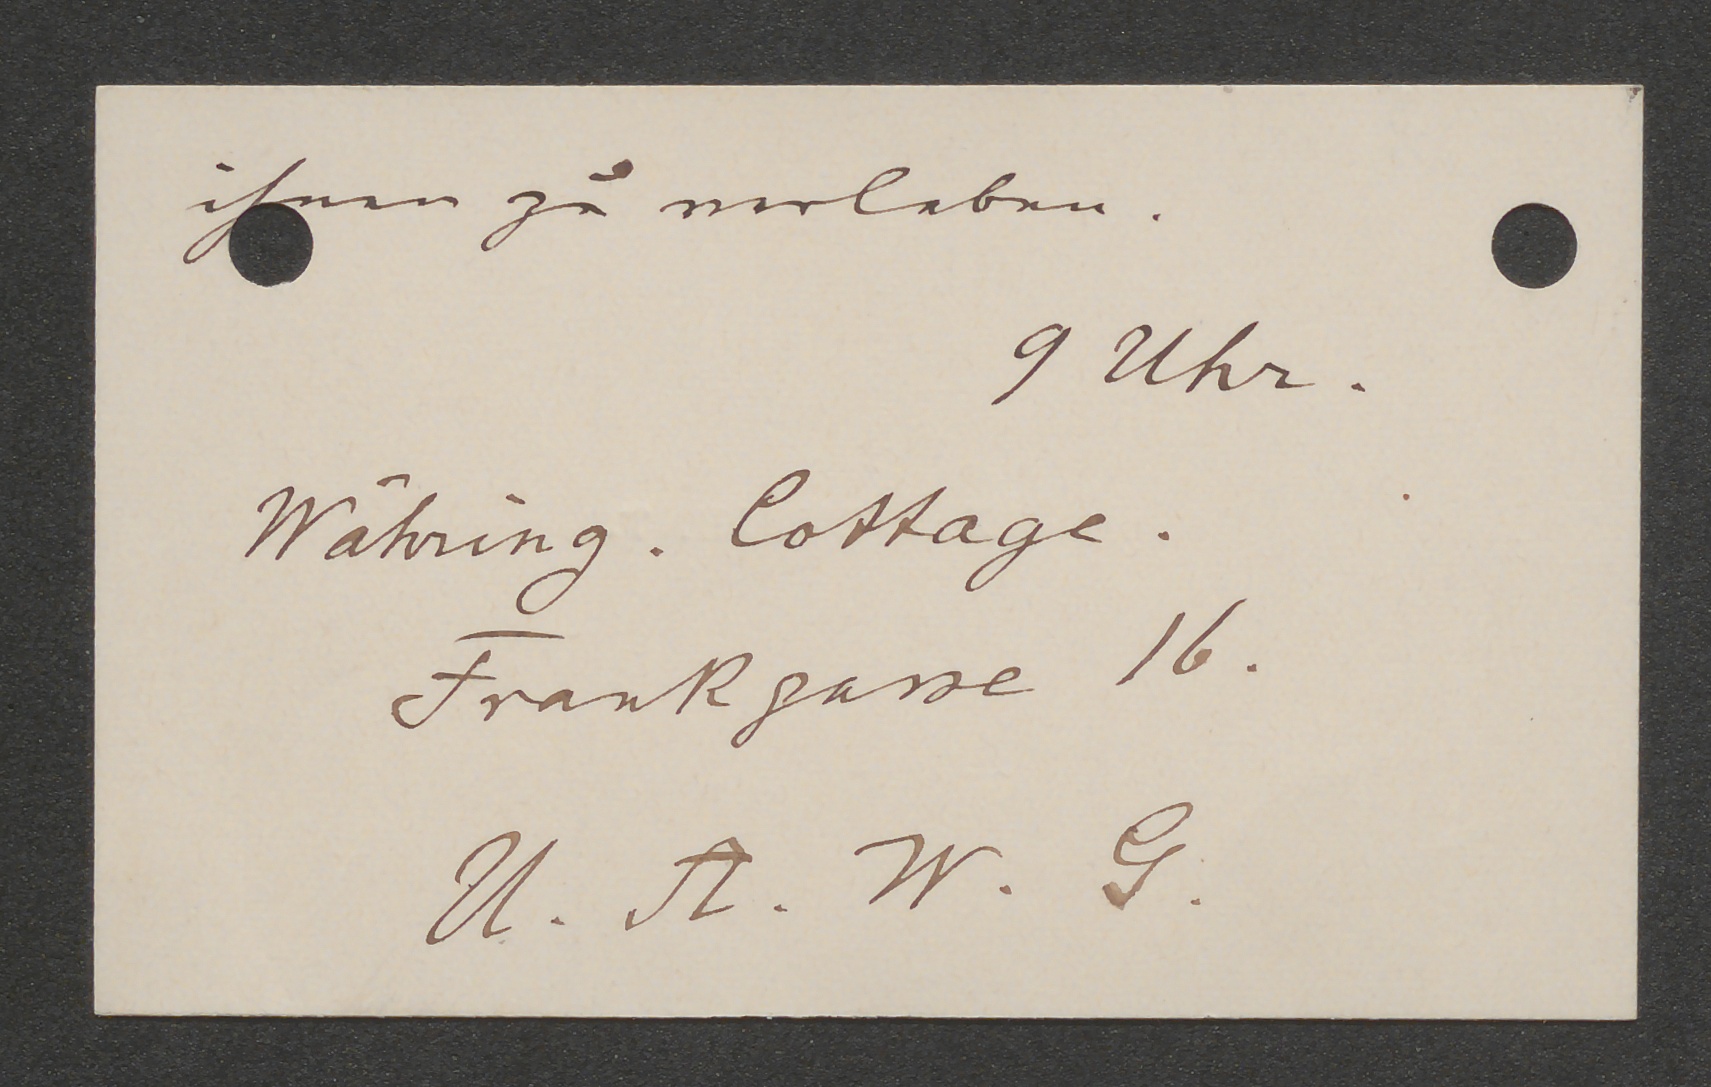 ihnen zu verleben.
9 Uhr.
Währing. Cottage.
Frankgasse 16.
U. A. W. G.